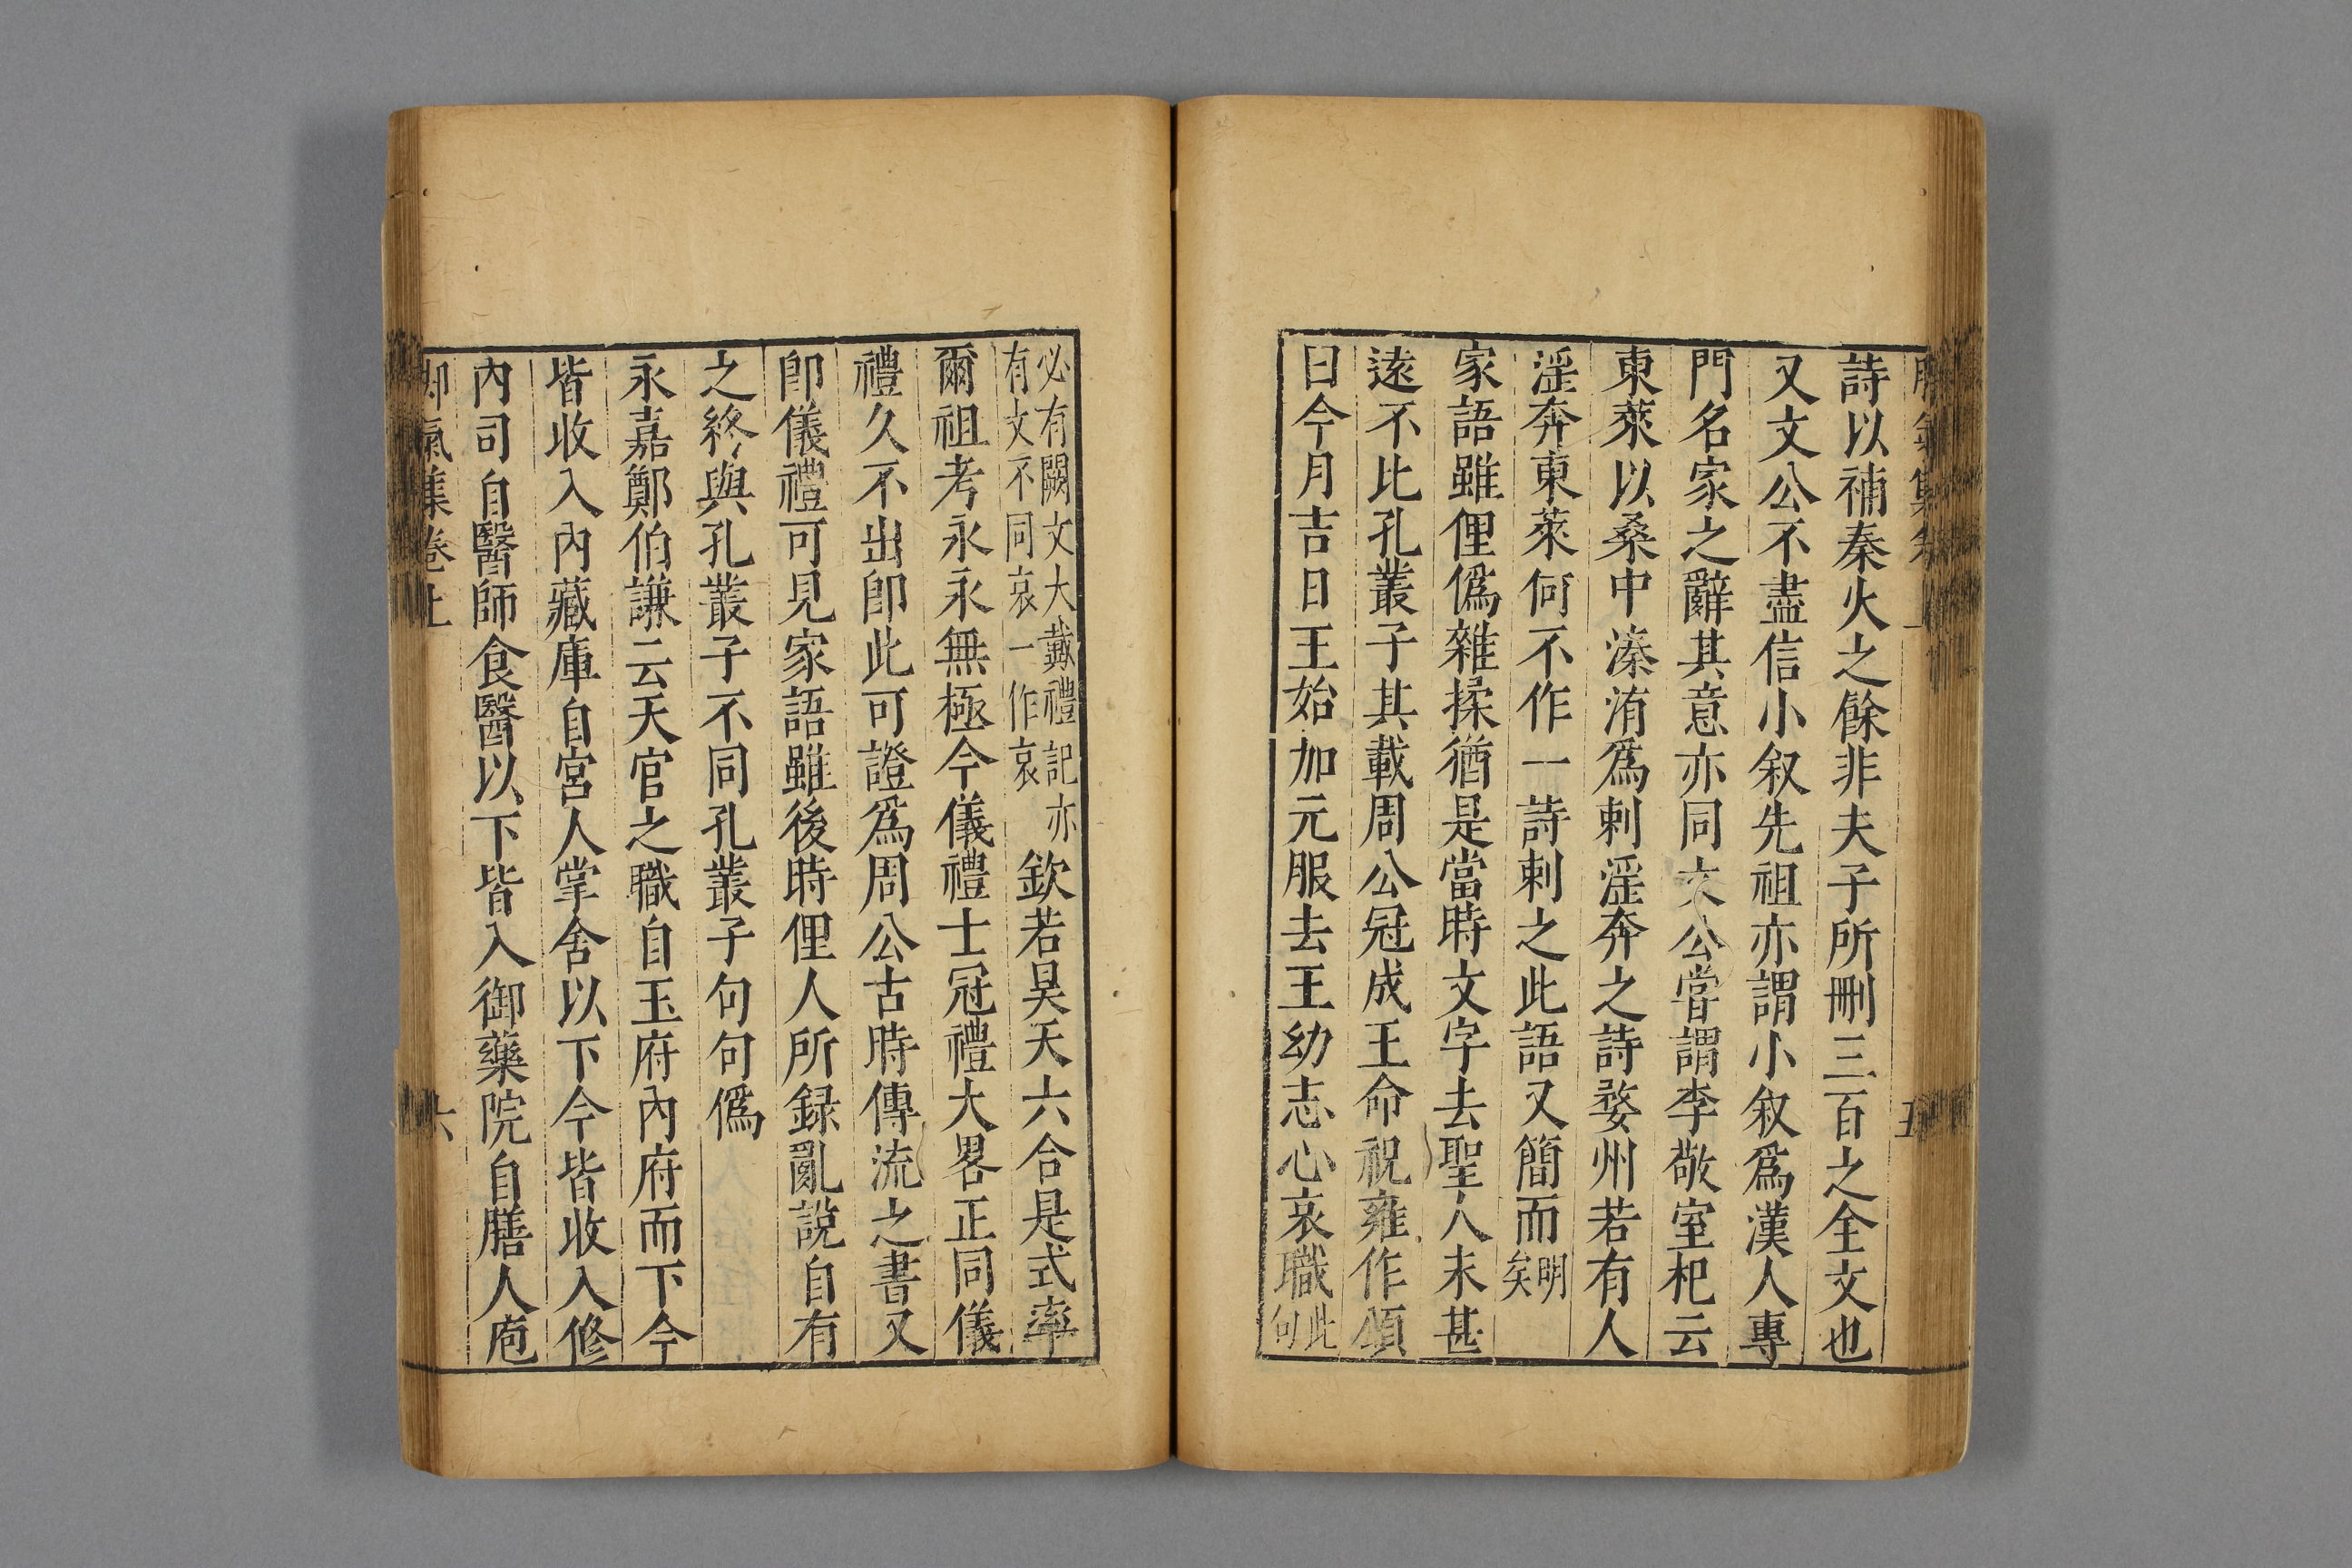 詩以補秦火之餘非夫子所刪三百之全文也
又文公不盡信小叙先祖亦謂小叙爲漢人專
門名家之辭其意亦同文公嘗謂李敬室杞云
東萊以桑中溱洧爲刺淫奔之詩婺州若有人
淫奔東萊何不作一詩刺之此語又簡而明矣
家語雖俚僞雜揉猶是當時文字去聖人未甚
遠不比孔叢子其載周公冠成王命祝雍作頌
曰今月吉日王始加元服去王幼志心哀職此句
必有闕文大戴禮記亦有文不同哀一作哀欽若昊天六合是式率
爾祖考永永無極今儀禮士冠禮大畧正同儀
禮久不出卽此可證爲周公古時傳流之書又
卽儀禮可見家語雖後時俚人所録亂說自有
之終與孔叢子不同孔叢子句句僞
永嘉鄭伯謙云天官之職自玉府內府而下今
皆收入內藏庫自宮人掌舍以下今皆收入修
內司自醫師食醫以下皆入御藥院自膳人庖
脚氣集卷上
六